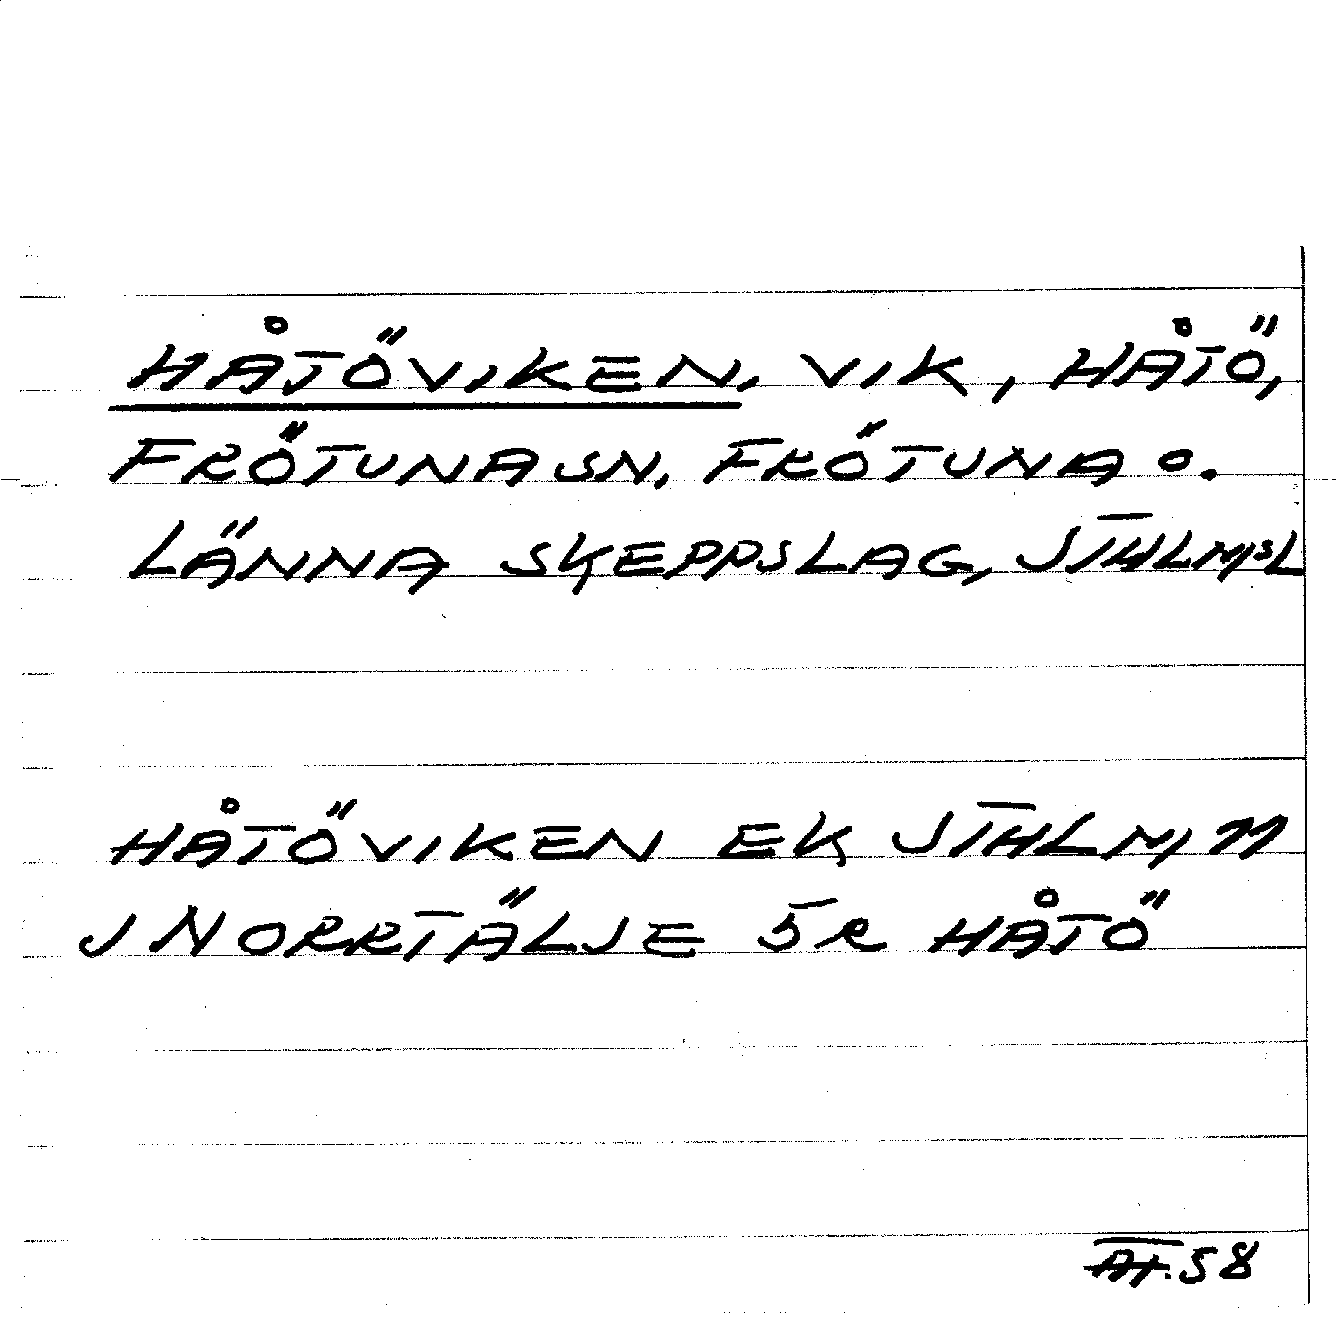 HÅTÖVIKEN, VIK, HÅTÖ,
FRÖTUNA SN, FRÖTUNA O.
LÄNNA SKEPPSLAG, STHLMSL
HÅTÖVIKEN EK STHLM 111
J NORRTÄLJE SR HÅTÖ
58